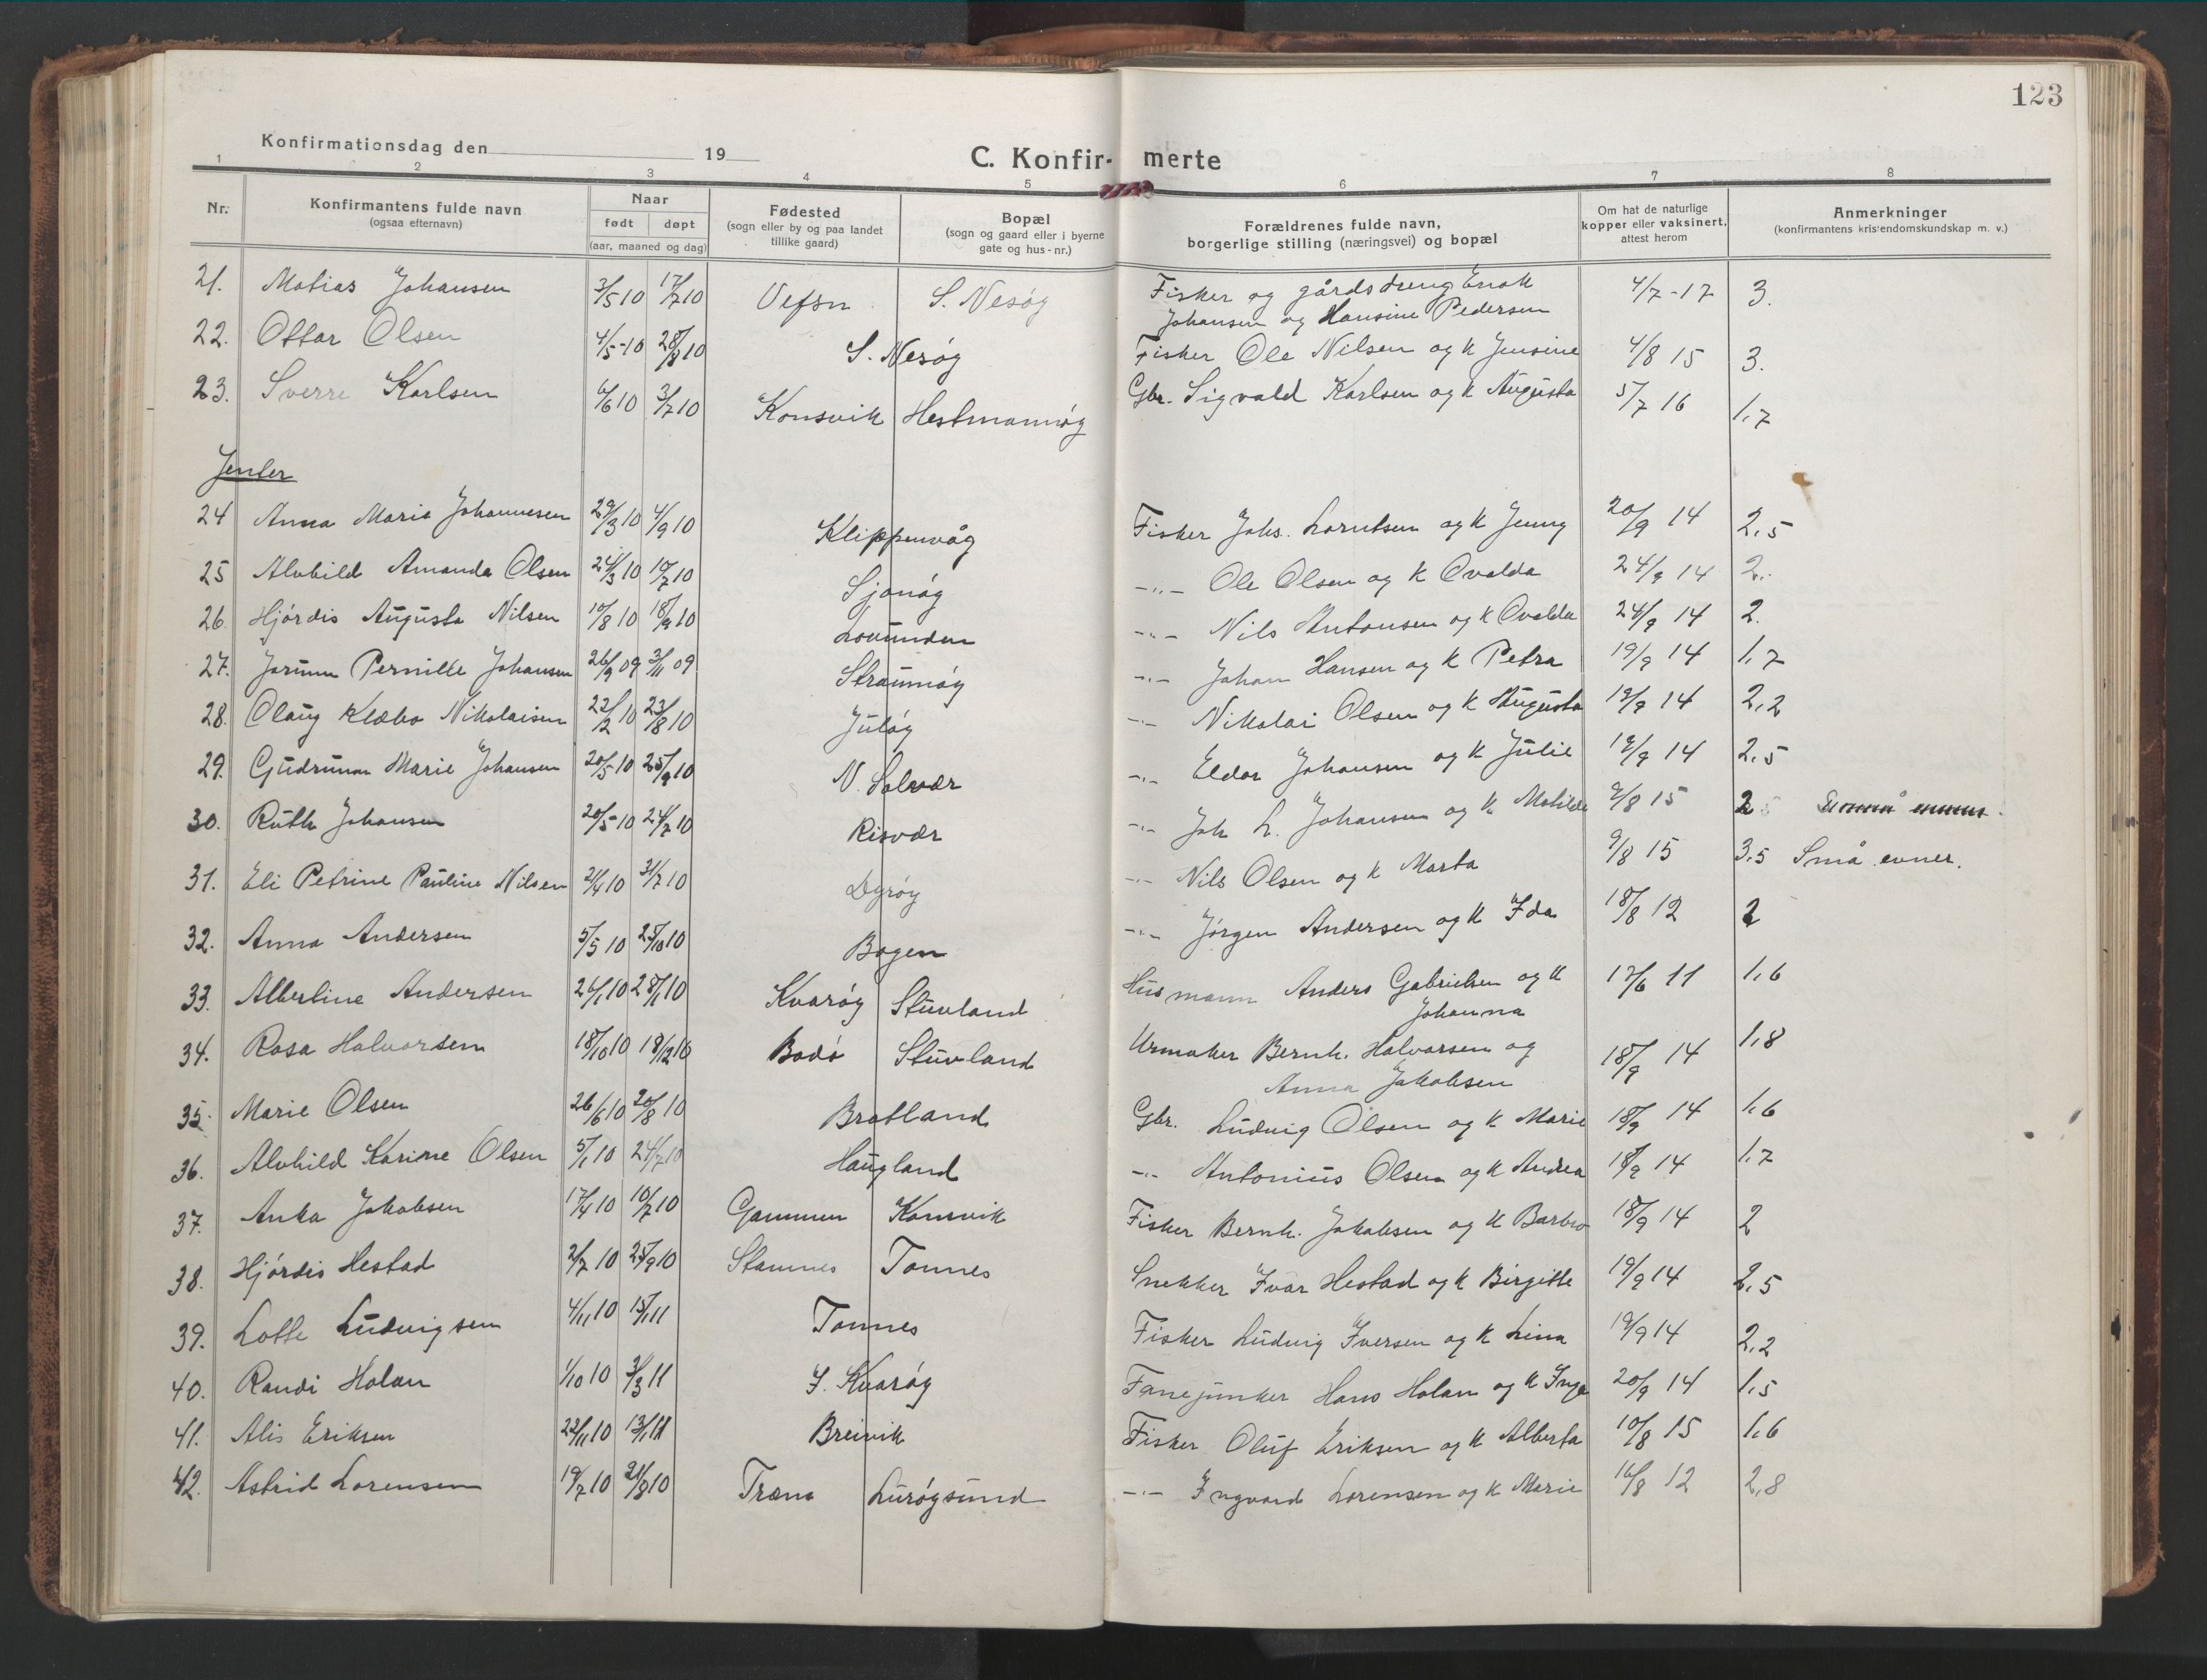 123
Konfirmationsdag den 19
C. Konfirmerte
1 2 3 4 5 6 7 8
Nr. Konfirmantens fulde navn (ogsaa efternavn) Naar født døpt (aar, maaned og dag) Fødested (sogn eller by og paa landet tillike gaard) Bopæl (sogn og gaard eller i byerne gate og hus-nr.) Forældrenes fulde navn, borgerlige stilling (næringsvei) og bopæl Om hat de naturlige kopper eller vaksinert, attest herom Anmerkninger (konfirmantens kristendomskundskap m. v.)
21. Matias Johansen 3/5 10 17/7 10 Vefsn S. Nesøy Fisker og gårdsdreng Enok Johansen og Hansine Pedersen 4/7-17 3.
22. Ottar Olsen 4/5-10 28/8 10 S. Nesøy Fisker Ole Nilsen og k Jensine 4/8 15 3.
23. Sverre Karlsen 6/6 10 3/7 10 Konsvik Hestmannøy Gbr. Sigvald Karlsen og k Augusta 5/7 16 1,7
Jenter
24 Anna Marie Johannesen 29/3 10 4/9 10 Klippenvåg Fisker Johs. Lorntsen og k Jenny 20/9 14 2,5
25 Alvhild Amanda Olsen 24/3 10 10/7 10 Sjonøy -"- Ole Olsen og k Ovalda 24/9 14 2.
26. Hjørdis Augusta Nilsen 10/8 10 18/9 10 Lovunden -"- Nils Antonsen og k Ovalda 24/9 14 2.
27. Jorunn Pernille Johansen 26/9 09 3/11 09 Straumøy -"- Johan Hansen og k Petra 19/9 14 1,7
28. Olaug Klæbo Nikolaisen 22/2 10 23/8 10 Juløy -"- Nikolai Olsen og k Augusta 19/9 14 2,2
29. Gudrunn Marie Johansen 20/5 10 25/9 10 N. Solvær -"- Eldor Johansen og k Julie 19/9 14 2,5
30. Ruth Johansen 20/5-10 24/7 10 Risvær -"- Joh L. Johansen og k Matilde 9/8 15 2
31. Eli Petrine Pauline Nilsen 21/4 10 31/7 10 Dyrøy -"- Nils Olsen og k Marta 9/8 15 3,5 Små evner.
32. Anna Andersen 5/5 10 25/10 10 Bogen -"- Jørgen Andersen og k Ida 18/8 12 2
33. Albertine Andersen 26/1 10 28/1 10 Kvarøy Stuvland Husmann Anders Gabrielsen og k Johanna 17/6 11 1,6
34. Rosa Halvorsen 18/10 10 18/12 10 Bodø Stuvland Urmaker Bernh. Halvorsen og Anna Jakobsen 18/9 14 1,8
35. Marie Olsen 26/6 10 20/8 10 Bratland Gbr. Ludvig Olsen og k Marie 18/9 14 1,6
36. Alvhild Karine Olsen 5/1 10 24/7 10 Haugland -"- Antonius Olsen og k Andrea 18/9 14 1,7
37. Anka Jakobsen 17/4 10 10/7 10 Gammen Konsvik Fisker Bernh. Jakobsen og k Barbro 18/9 14 2
38. Hjørdis Hestad 2/7 10 25/9 10 Stamnes Tonnes Snekker Ivar Hestad og k Birgitte 19/9 14 2,5
39. Lotte Ludvigsen 4/11 10 15/1 11 Tonnes Fisker Ludvig Iversen og k Lina 19/9 14 2,2
40. Randi Holan 1/10 10 3/3 11 I. Kvarøy Fanejunker Hans Holan og k Inga 20/9 14 1,5
41. Alis Eriksen 22/11 10 13/1 11 Breivik Fisker Oluf Eriksen og k Alberta 10/8 15 1,6
42. Astrid Lorensen 19/7 10 21/8 10 Træna Lurøysund -"- Ingvard Lorensen og k Marie 16/8 12 2,8